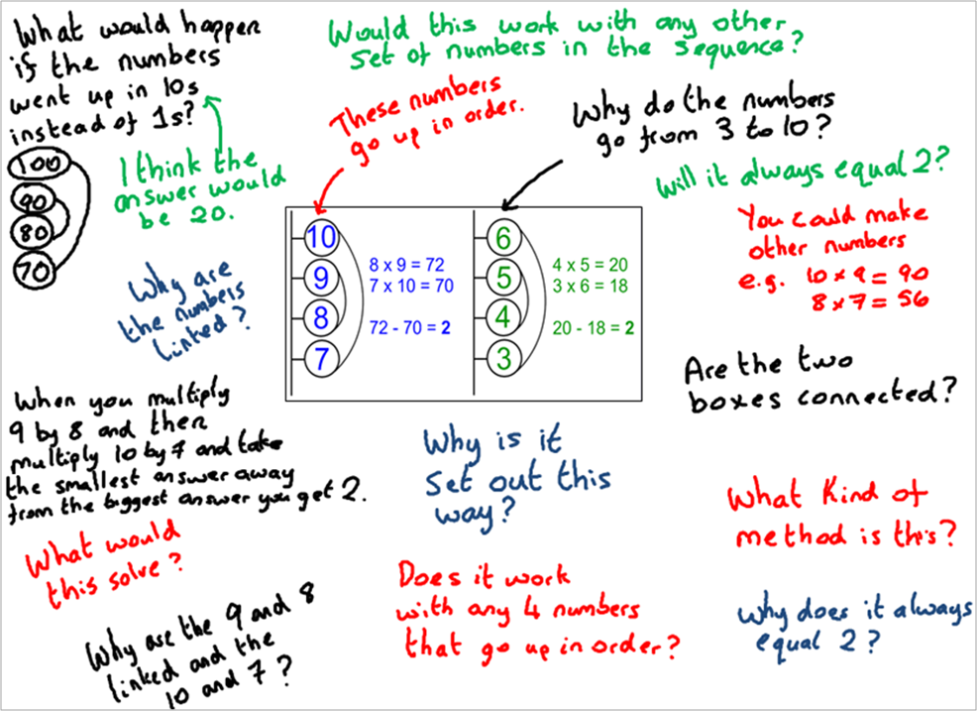 What would happen
if the numbers
went up in 10s
instead of 1s?
100
90
80
70
I think the
answer would
be 20.
Would this work with any other
set of numbers in the sequence?
These numbers
go up in order.
Why do the numbers
go from 3 to 10?
Will it always equal 2?
You could make
other numbers
e.g. 10 x 9 = 90
8 x 7 = 56
Why are
the numbers
linked?
10
9
8
7
8 x 9 = 72
7 x 10 = 70
72 - 70 = 2
6
5
4
3
4 x 5 = 20
3 x 6 = 18
20 - 18 = 2
Are the two
boxes connected?
When you multiply
9 by 8 and then
multiply 10 by 7 and take
the smallest answer away
from the biggest answer you get 2.
Why is it
set out this
way?
What kind of
method is this?
What would
this solve?
Does it work
with any 4 numbers
that go up in order?
Why does it always
equal 2?
Why are the 9 and 8
linked and the
10 and 7?